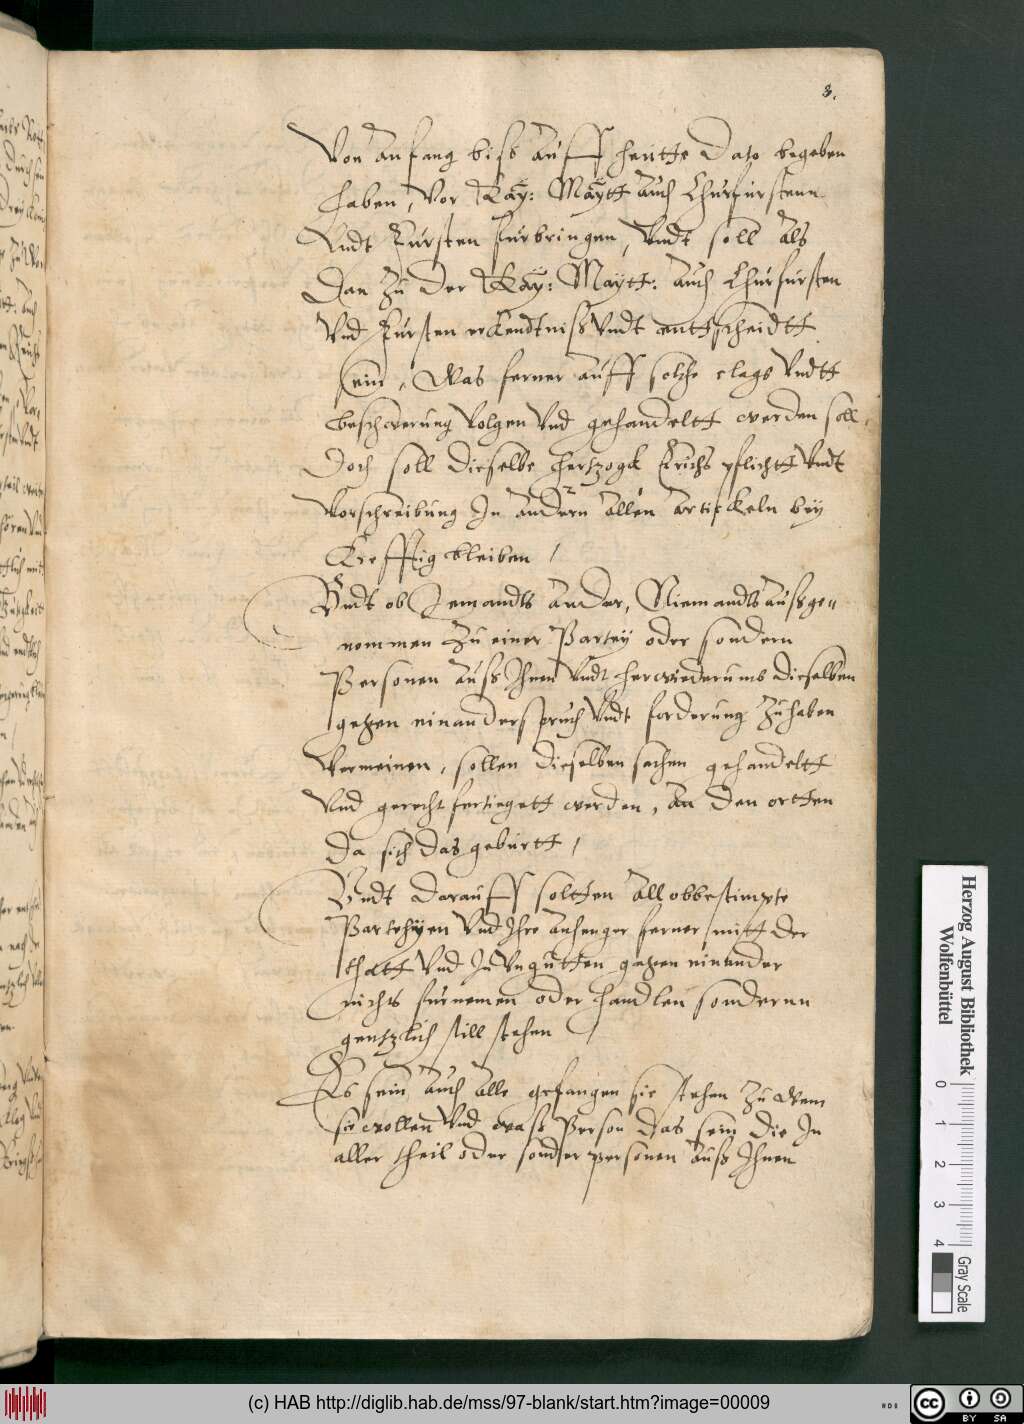 3.
Von anfang biß auff heutte Dato begeben
haben, Vor Kay: Maytt auch Churfursten
Vndt Fursten furbringen, Vndt soll als
Dan zu der Kay: Maytt: auch Churfursten
Vnd Fursten erkendtniß Vndt entscheidtt
sein, Was ferner auff solche clags Vndtt
beschwerung Volgen Vnd gehandeltt werden soll,
Doch soll dieselbe hertzogk Erichs pflichtt Vndt
Vorschreibung In andern allen artickeln bey
Krefftig bleiben /
Vndt ob Jemandts ander, Niemandts außge=
nommen zu einer Partey oder sondern
Personen auß Ihnen Vndt herwiederumb dieselben
gegen einander spruch Vndt forderung zuhaben
Vermeinen, sollen dieselben sachen gehandeltt
Vnd gerechtfertiegett werden, an den ortten
da sich das geburtt /
Vndt darauff soltten all obbestimpte
Partheyen Vnd Ihre anhenger ferner mitt der
thatt Vnd In Vnguetten gegen einander
nichts furnemen oder handlen sondernn
gentzlich still stehen /
Es sein auch alle gefangen sie stehen zu Wem
sie wollen Vnd waß Person das sein die In
aller theil oder sonder personen auß Ihnen
Herzog August Bibliothek
Wolfenbüttel
0
1
2
3
4
Gray Scale
(c) HAB http://diglib.hab.de/mss/97-blank/start.htm?image=00009
cc
BY SA